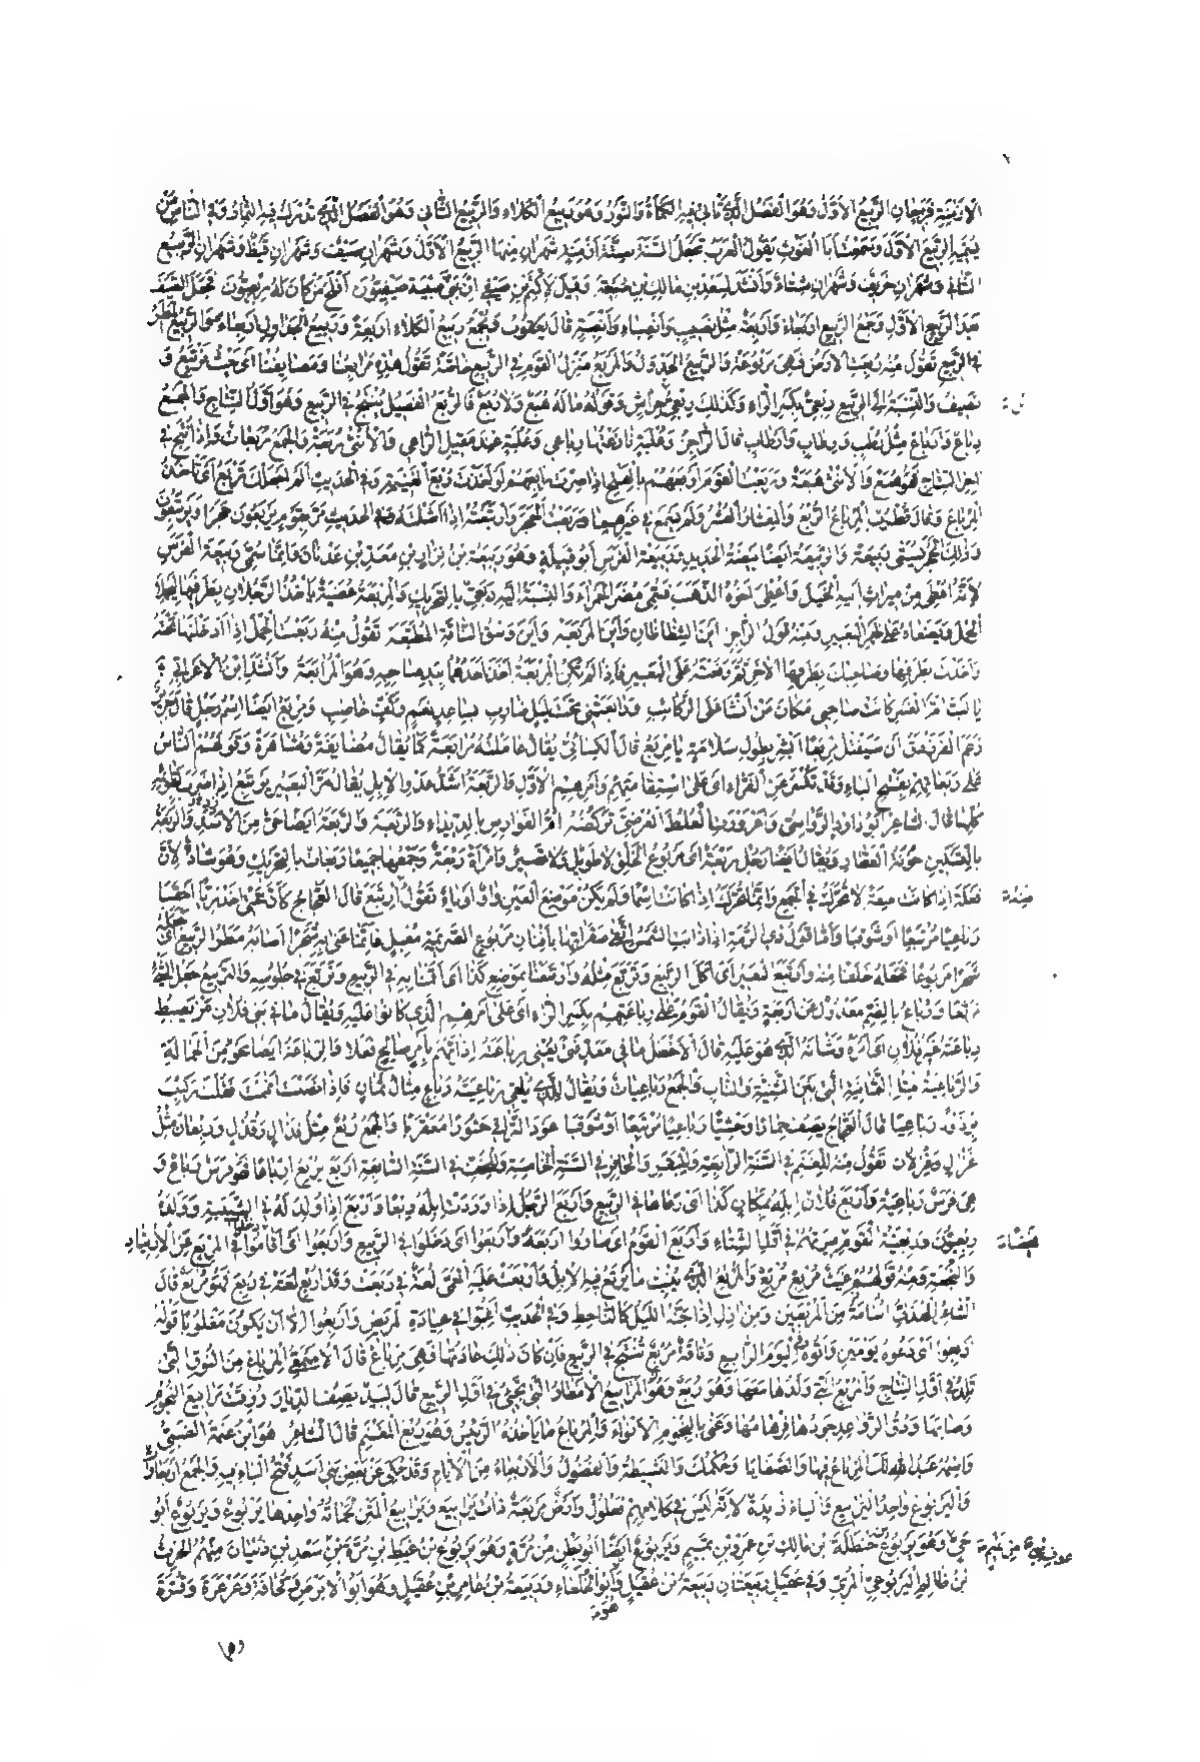 الازمنة فربيعان الربيع الاول وهو الفصل الذى تاتى فيه الكمأة والنور وهو ربيع الكلاء والربيع الثانى وهو الفصل الذى تدرك فيه الثمار وفى الناس من
يسميه الربيع الاول وسمعت ابا الغوث يقول العرب تجعل السنة ستة ازمنة شهران منها الربيع الاول وشهران صيف وشهران قيظ وشهران الربيع
الثانى وشهران خريف وشهران شتاء وانشد لسعد بن مالك بن ضبيعة ان بنى صبية صيفيون افلح من كان له ربعيون فجعل الصيف
بعد الربيع الاول وجمع الربيع اربعاء واربعة مثل نصيب وانصباء وانصبة قال يعقوب وتجمع ربيع الكلاء اربعة وربيع الجداول اربعاء والربيع المطر
فى الربيع تقول منه ربعت الارض فهى مربوعة والربيع الجدول والمربع منزل القوم فى الربيع خاصة تقول هذه مرابعنا ومصايفنا اى حيث نرتبع و
نصيف والنسبة الى الربيع ربعى بكسر الراء وكذلك ربعى بن حراش وقولهم ماله هبع ولا ربع فالربع الفصيل ينتج فى الربيع وهو اول النتاج والجمع
رباع وارباع مثل رطب ورطاب وارطاب قال الراجز وعلبة نازعتها رباعى وعلبة عند مقيل الراعى والانثى ربعة والجمع ربعات فاذا نتج فى
اخر النتاج فهو هبع والانثى هبعة وربعت القوم اربعهم بالفتح اذا صرت رابعهم او اخذت ربع الغنيمة وفى الحديث الم اجعلك تربع اى تاخذ
المرباع وقال قطرب المرباع الربع والمعشار العشر ولم يسمع فى غيرهما وربعت الحجر وارتبعته اذا اشلته وفى الحديث مر بقوم يربعون حجرا ويرتبعون
وذلك الحجر يسمى ربيعة والربيعة ايضا بيضة الحديد وربيعة الفرس ابو قبيلة وهو ربيعة بن نزار بن معد بن عدنان وانما سمى ربيعة الفرس
لانه اعطى من ميراث ابيه الخيل واعطى اخوه الذهب فسمى مضر الحمراء والنسبة اليه ربعى بالتحريك والمربعة عصية ياخذ الرجلان بطرفيها ليحملا
الحمل ويضعاه على ظهر البعير ومنه قول الراجز اين الشظاظان واين المربعة واين وسق الناقة المطبعة تقول منه ربعت الحمل اذا ادخلتها تحته
واخذت بطرفها وصاحبك بطرفها الاخر ثم رفعته على البعير فاذا لم تكن المربعة اخذ احدهما بيد صاحبه وهو المرابعة وانشد ابن الاعرابى
يا ليت ام الفيض كانت صاحبى مكان من انشا على الركائب ورابعتنى تحت ليل ضارب بساعد فعم وكف خاضب ومربع ايضا اسم رجل قال جرير
زعم الفرزدق ان سيقتل مربعا ابشر بطول سلامة يا مربع قال الكسائى يقال عاملته مرابعة كما يقال مصايفة ومشاهرة وقولهم الناس
على ربعاتهم بفتح الباء وقد تكسر عن الفراء اى على استقامتهم وامرهم الاول والربعة اشد عدو الابل يقال مر البعير يرتبع اذا ضرب بقوائمه
كلها قال الشاعر ابو داود الرواسى واعرورت العلط العرضى تركضه ام الفوارس بالديداء والربعة والربعة ايضا حى من الاسد والربعة
بالتسكين جونة العطار ويقال ايضا رجل ربعة اى مربوع الخلق لا طويل ولا قصير وامراة ربعة وجمعها جميعا ربعات بالتحريك وهو شاذ لان
فعلة اذا كانت صفة لا تحرك فى الجمع وانما تحرك اذا كانت اسما ولم يكن موضع العين واو او ياء تقول ارتبع قال العجاج كان تحتى اخدريا احقبا
رباعيا مرتبعا او شوقبا واما قول ذى الرمة اذا ذابت الشمس اتقى صقراتها بافنان مربوع الصريمة معبل فانما عنى به شجرا اصابه مطر الربيع اى جعله
شجرا مربوعا فجعله خلفا منه وارتبع البعير اى اكل الربيع وتربع مثله وارتبعنا بموضع كذا اى اقمنا به فى الربيع وتربع فى جلوسه والتربيع جعل الشئ
مربعا ورباع بالضم معدول عن اربعة ويقال القوم على رباعتهم بكسر الراء اى على امرهم الذى كانوا عليه ويقال ما فى بنى فلان من يضبط
رباعته غير فلان اى امره وشانه الذى هو عليه قال الاخطل ما فى معد فتى يغنى رباعته اذا يهم بامر صالح فعلا والرباعة ايضا نحو من الحمالة
والرباعية مثل الثمانية التى بين الثنية والناب والجمع رباعيات ويقال للذى يلقى رباعيته رباع مثال ثمان فاذا نصبت اتممت فقلت ركبت
برذونا رباعيا قال العجاج يصف حمارا وحشيا رباعيا مرتبعا او شوقبا والجمع ربع مثل قذال وقذل وربعان مثل
غزال وغزلان تقول منه للغنم فى السنة الرابعة وللبقر والحافر فى السنة الخامسة وللخف فى السنة السابعة اربع يربع ارباعا فهو فرس رباع و
هى فرس رباعية واربع فلان ابله بمكان كذا اى رعاها فى الربيع واربع الرجل اذا وردت ابله ربعا واربع اذا ولد له فى الشبيبة وولده
ربعيون واربع القوم اى صاروا اربعة واربعوا اى دخلوا فى الربيع واربعوا اى اقاموا فى المربع عن الارتياد
والنجعة ومنه قولهم غيث مربع مرتع والمرتع الذى ينبت ما ترتع فيه الابل واربعت عليه الحمى لغة فى ربعت وقد اربع لغة فى ربع فهو مربع قال
الشاعر الهذلى اسامة من المربعين ومن ازل اذا جنه الليل كالناحط وفى الحديث اغبوا فى عيادة المريض واربعوا الا ان يكون مغلوبا قوله
اربعوا اى دعوه يومين واتوه اليوم الرابع وناقة مربع تنتج فى الربيع فان كان ذلك عادتها فهى مرباع قال الاصمعى المرباع من النوق التى
تلد فى اول النتاج والمربع التى ولدها معها وهو ربع وهو المرابيع الامطار التى تجئ فى اول الربيع قال لبيد يصف الديار رزقت مرابيع النجوم
وصابها ودق الرواعد جودها فرهامها وعنى بالنجوم الانواء والمرباع ما ياخذه الرئيس وهو ربع المغنم قال الشاعر هو ابن عنمة الضبى
واسمه عبد الله لك المرباع فيها والصفايا وحكمك والنشيطة والفضول والاربعاء من الايام وقد حكى عن بعض بنى اسد فتح الباء فيه والجمع اربعاوات
واليربوع واحد اليرابيع والياء زيادة لانه ليس فى كلامهم فعلول وارض مربعة ذات يرابيع ويرابيع المتن لحماته واحدها يربوع ويربوع ابو
حى وهو يربوع بن حنظلة بن مالك بن عمرو بن تميم ويربوع ايضا ابو بطن من مرة وهو يربوع بن غيظ بن مرة بن سعد بن ذبيان منهم الحرث
بن ظالم اليربوعى المرى وفى عقيل ربيعتان ربيعة بن عقيل وابو الخلعاء وربيعة بن عامر بن عقيل وهو ابو الابرص وقحافة وعرعرة وقرة